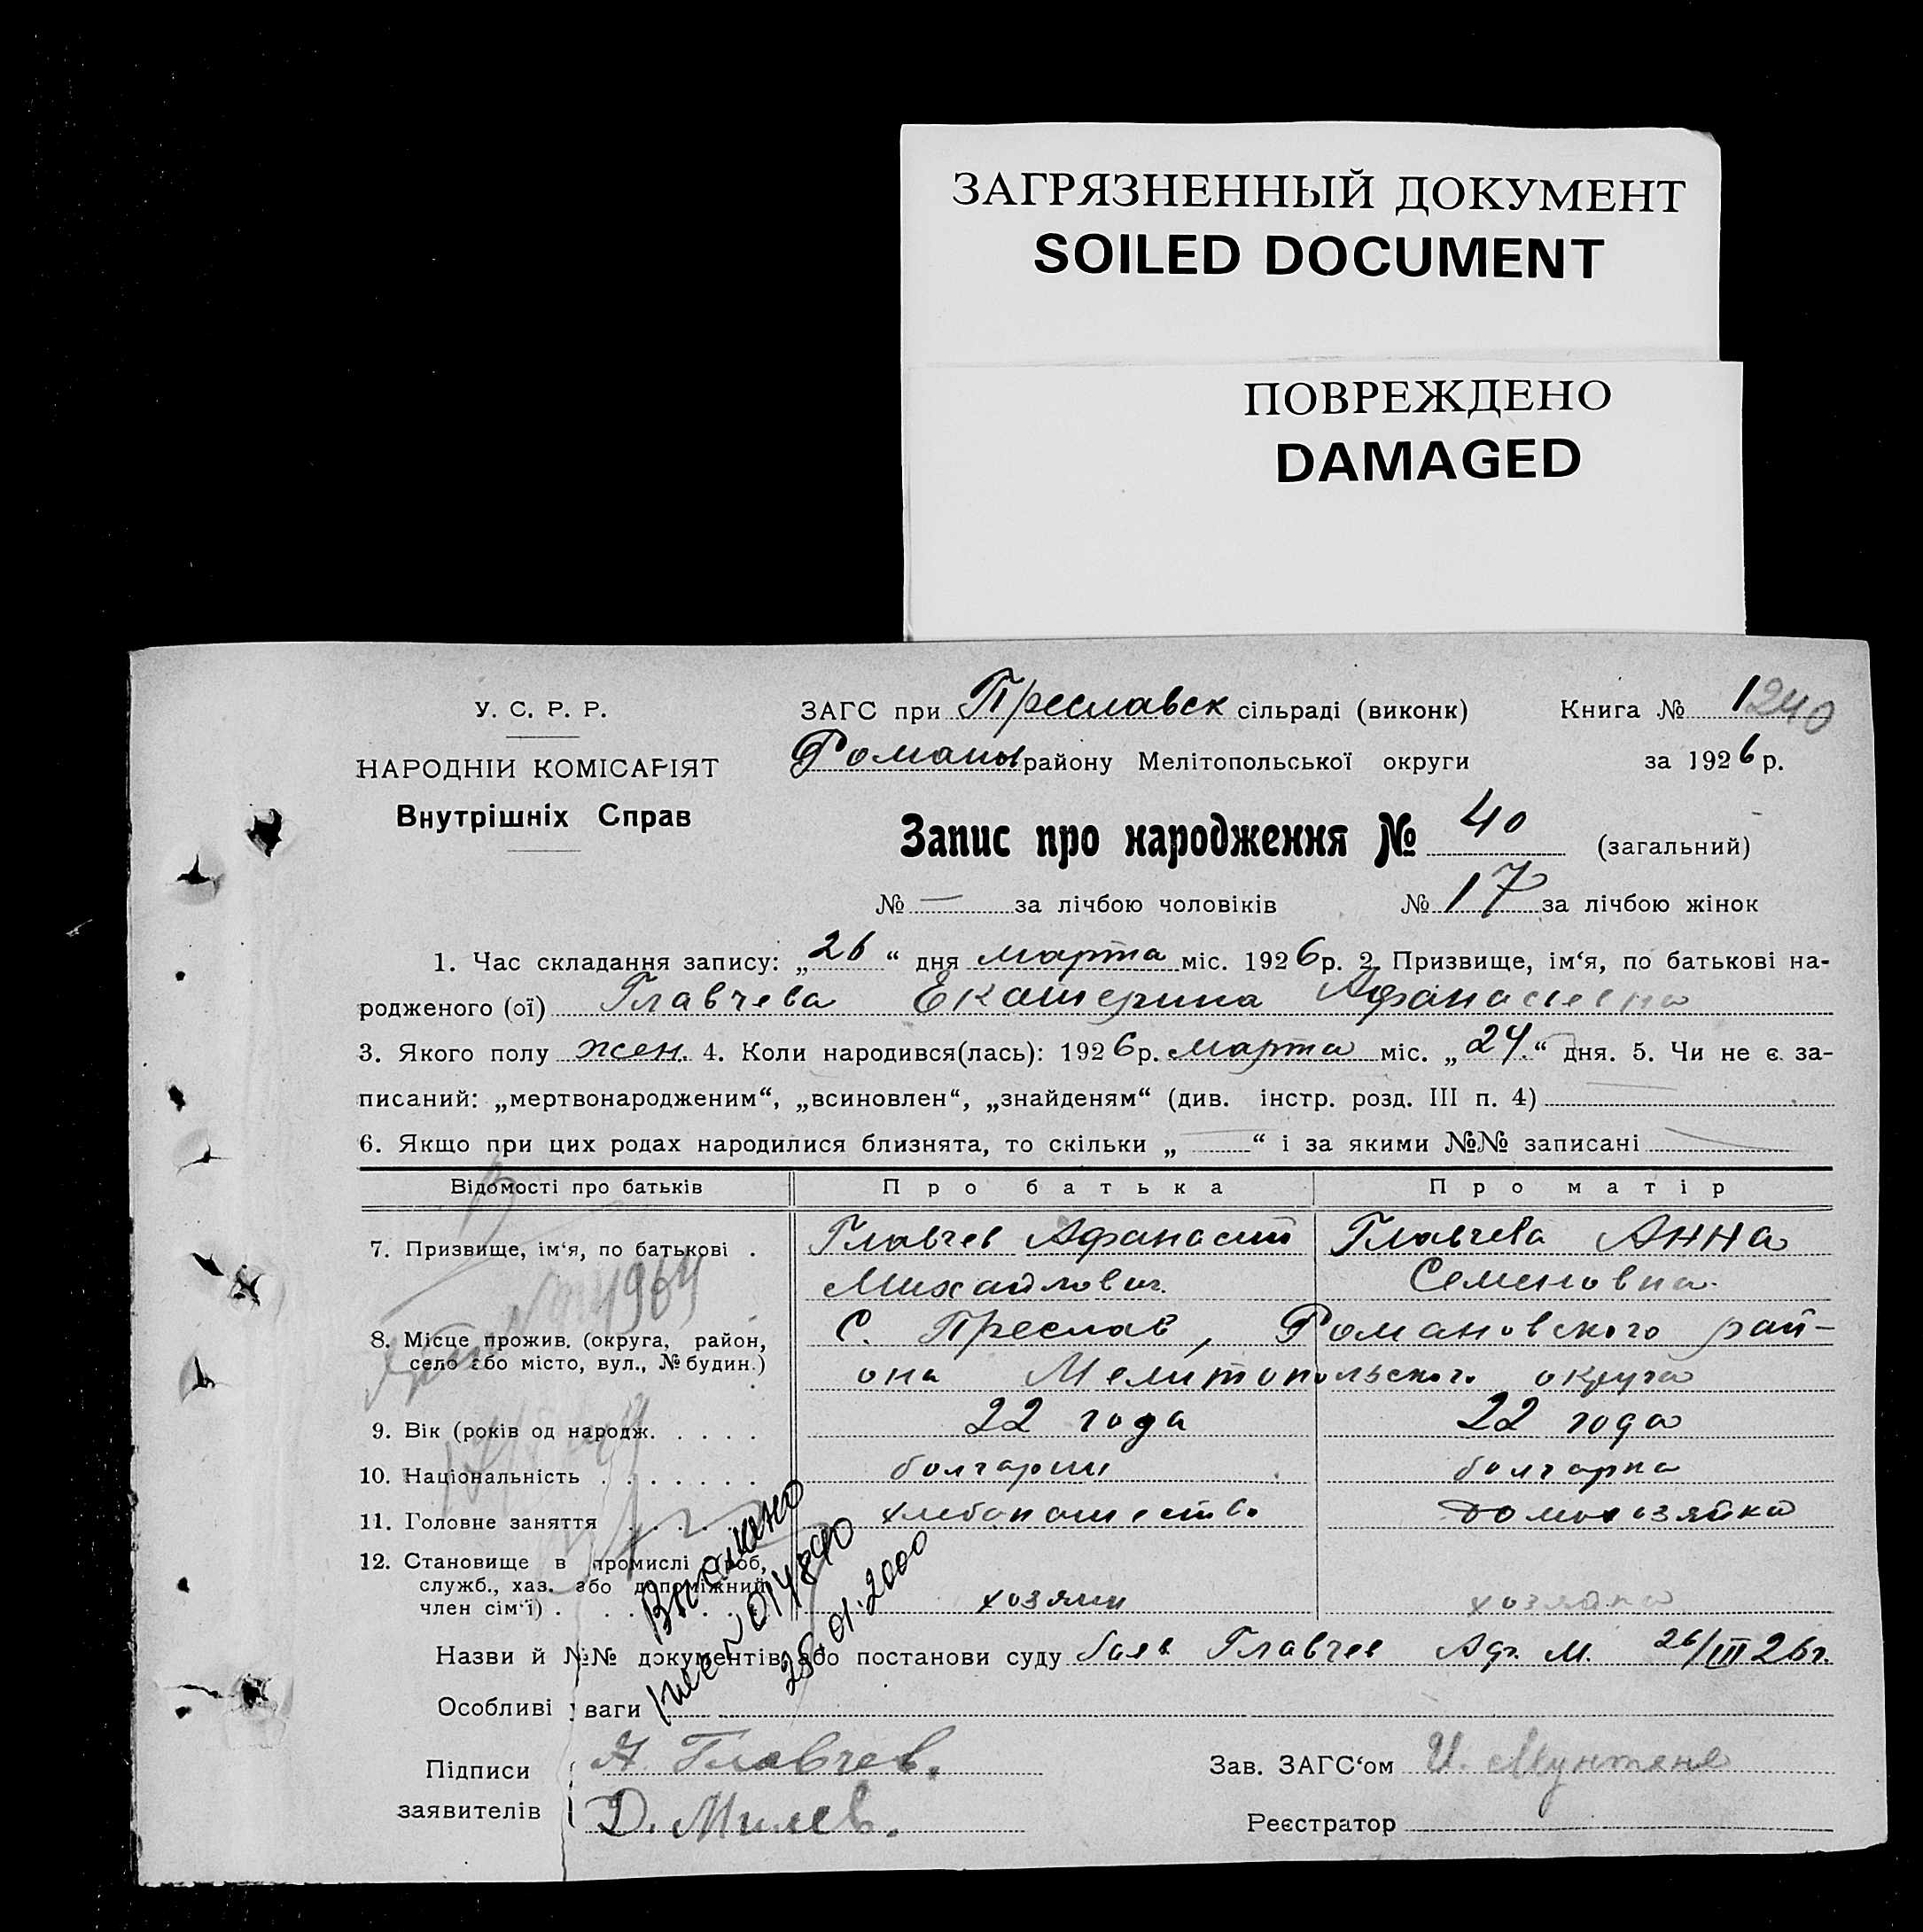 ЗАГРЯЗНЕННЫЙ ДОКУМЕНТ
SOILED DOCUMENT
ПОВРЕЖДЕНО
DAMAGED
У. С. Р. Р.
НАРОДНІЙ КОМІСАРІЯТ
Внутрішніх Справ
ЗАГС при Преславск сільраді (виконк) Книга № 1 240
Романов району Мелітопольської округи за 1926 р.
Запис про народження № 40 (загальний)
№ — за лічбою чоловіків № 17 за лічбою жінок
1. Час складання запису: „26“ дня марта міс. 1926 р. 2. Призвище, ім‘я, по батькові на-
родженого (ої) Главчева Екатерина Афанасиевна
3. Якого полу жен. 4. Коли народився(лась): 1926 р. марта міс. „24.“ дня. 5. Чи не є за-
писаний: „мертвонародженим“, „всиновлен“, „знайденям“ (див. інстр. розд. III п. 4) —
6. Якщо при цих родах народилися близнята, то скільки „—“ і за якими №№ записані —
Відомості про батьків Про батька Про матір
7. Призвище, ім‘я, по батькові . Главчев Афанасий Главчева Анна
Михайлович. Семеновна.
8. Місце прожив. (округа, район, село або місто, вул., № будин.) С. Преслав, Романовского рай-
она Мелитопольского округа
9. Вік (років од народж. . . . . . 22 года 22 года
10. Національність . . . . . . . болгарин болгарка
11. Головне заняття . . . . хлебопашество домохозяйка
12. Становище в промислі (роб, служб., хаз. або допоміжний член сім‘ї) . хозяин хозяйка
Назви й №№ документів або постанови суду Главчев Аф. М. 26/III 26 г.
Особливі уваги
014840
28.01.2000
Підписи А. Главчев. Зав. ЗАГС‘ом И. Мунтяне
заявителів Д. Милев. Реєстратор